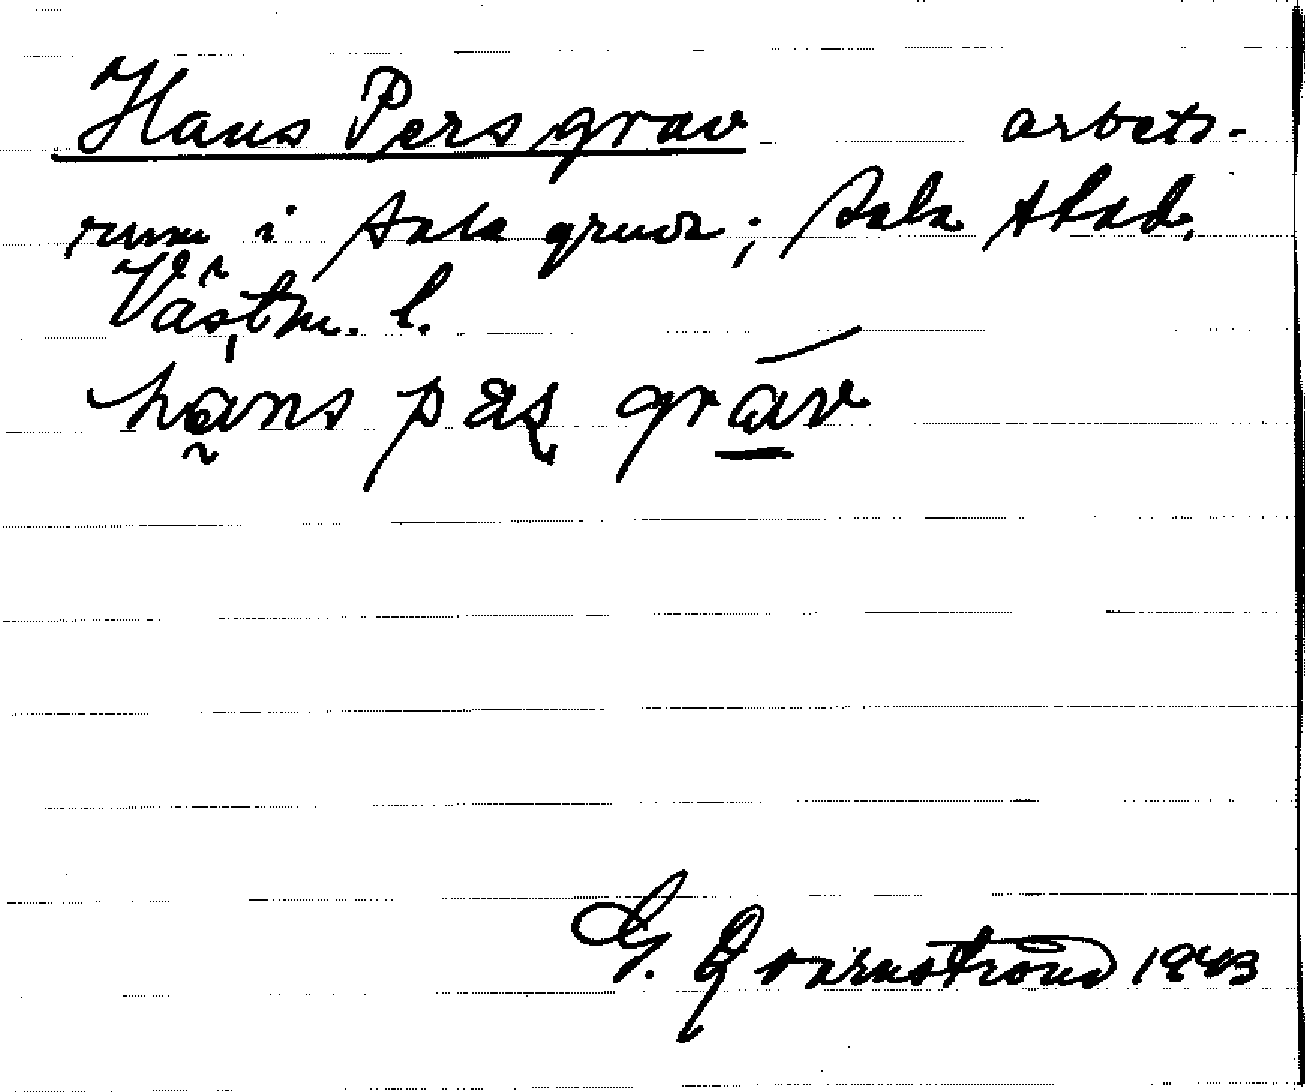 Hans Persgrav arbets-
rum i Sala gruva; Sala stad,
Västm. l.
hans pæs grav
G. Qvarnström 1943